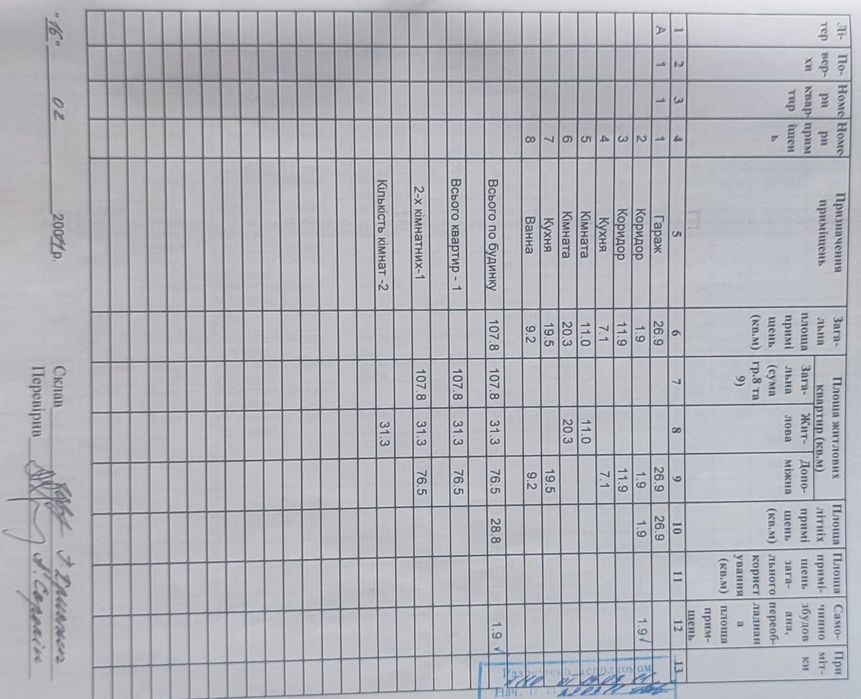 Лі-тер По-вер-хи Номери квартир Номери приміщень Призначення приміщень Загальна площа приміщень (кв.м) Площа житлових квартир (кв.м) Загальна (сума гр.8 та 9) Житлова Допоміжна Площа літніх приміщень (кв.м) Площа примі-щень зага-льного корист ування (кв.м) Само-чинно збудов ана, переоб-ладнан а площа прим-щень При міт-ки
1 2 3 4 5 6 7 8 9 10 11 12 13
А 1 1 1 Гараж 26.9 26.9 26.9
2 Коридор 1.9 1.9 1.9 1.9√
3 Коридор 11.9 11.9
4 Кухня 7.1 7.1
5 Кімната 11.0 11.0
6 Кімната 20.3 20.3
7 Кухня 19.5 19.5
8 Ванна 9.2 9.2
Всього по будинку 107.8 107.8 31.3 76.5 28.8 1.9 √
Всього квартир - 1 107.8 31.3 76.5
2-х кімнатних-1 107.8 31.3 76.5
Кількість кімнат -2 31.3
"16" 02 200 р. Склав
Перевірив